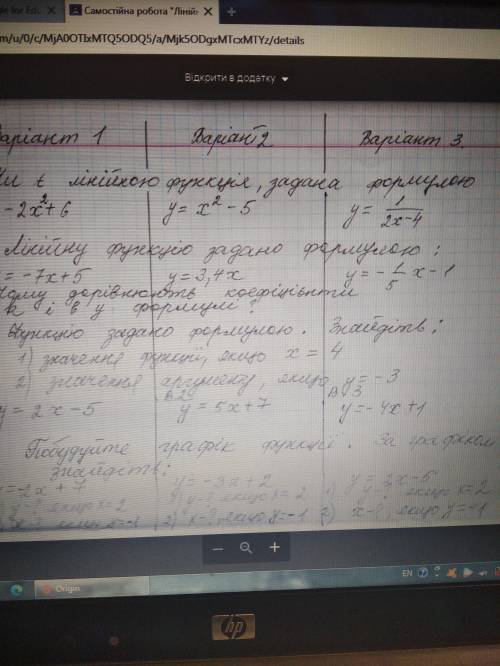 gle for Edu × Самостійна робота "Лінійн ×
m/u/0/c/MjA0OTIxMTQ5ODQ5/a/Mjk5ODgxMTcxMTYz/details
Відкрити в додатку
аріант 1 Варіант 2 Варіант 3.
Чи є лінійною функція, задана формулою
-2x²+6 y = x² - 5 y = 1/(2x-4)
Лінійну функцію задано формулою:
= -7x+5 y = 3,4x y = -1/5 x - 1
Чому дорівнюють коефіцієнти
k і b у формулі?
Функцію задано формулою. Знайдіть:
1) значення функції, якщо x = 4
2) значення аргументу, якщо y = -3
y = 2x - 5 y = 5x+7 y = -4x+1
Побудуйте графік функції. За графіком
знайдіть:
y = -2x+7 y = -3x+2 y = 3x-5
y-?, якщо x=2 1) y-?, якщо x=2 1) y-?, якщо x=2
x-?, якщо y=-1 2) x-?, якщо y=-1 2) x-?, якщо y=-1
Origin
EN
hp